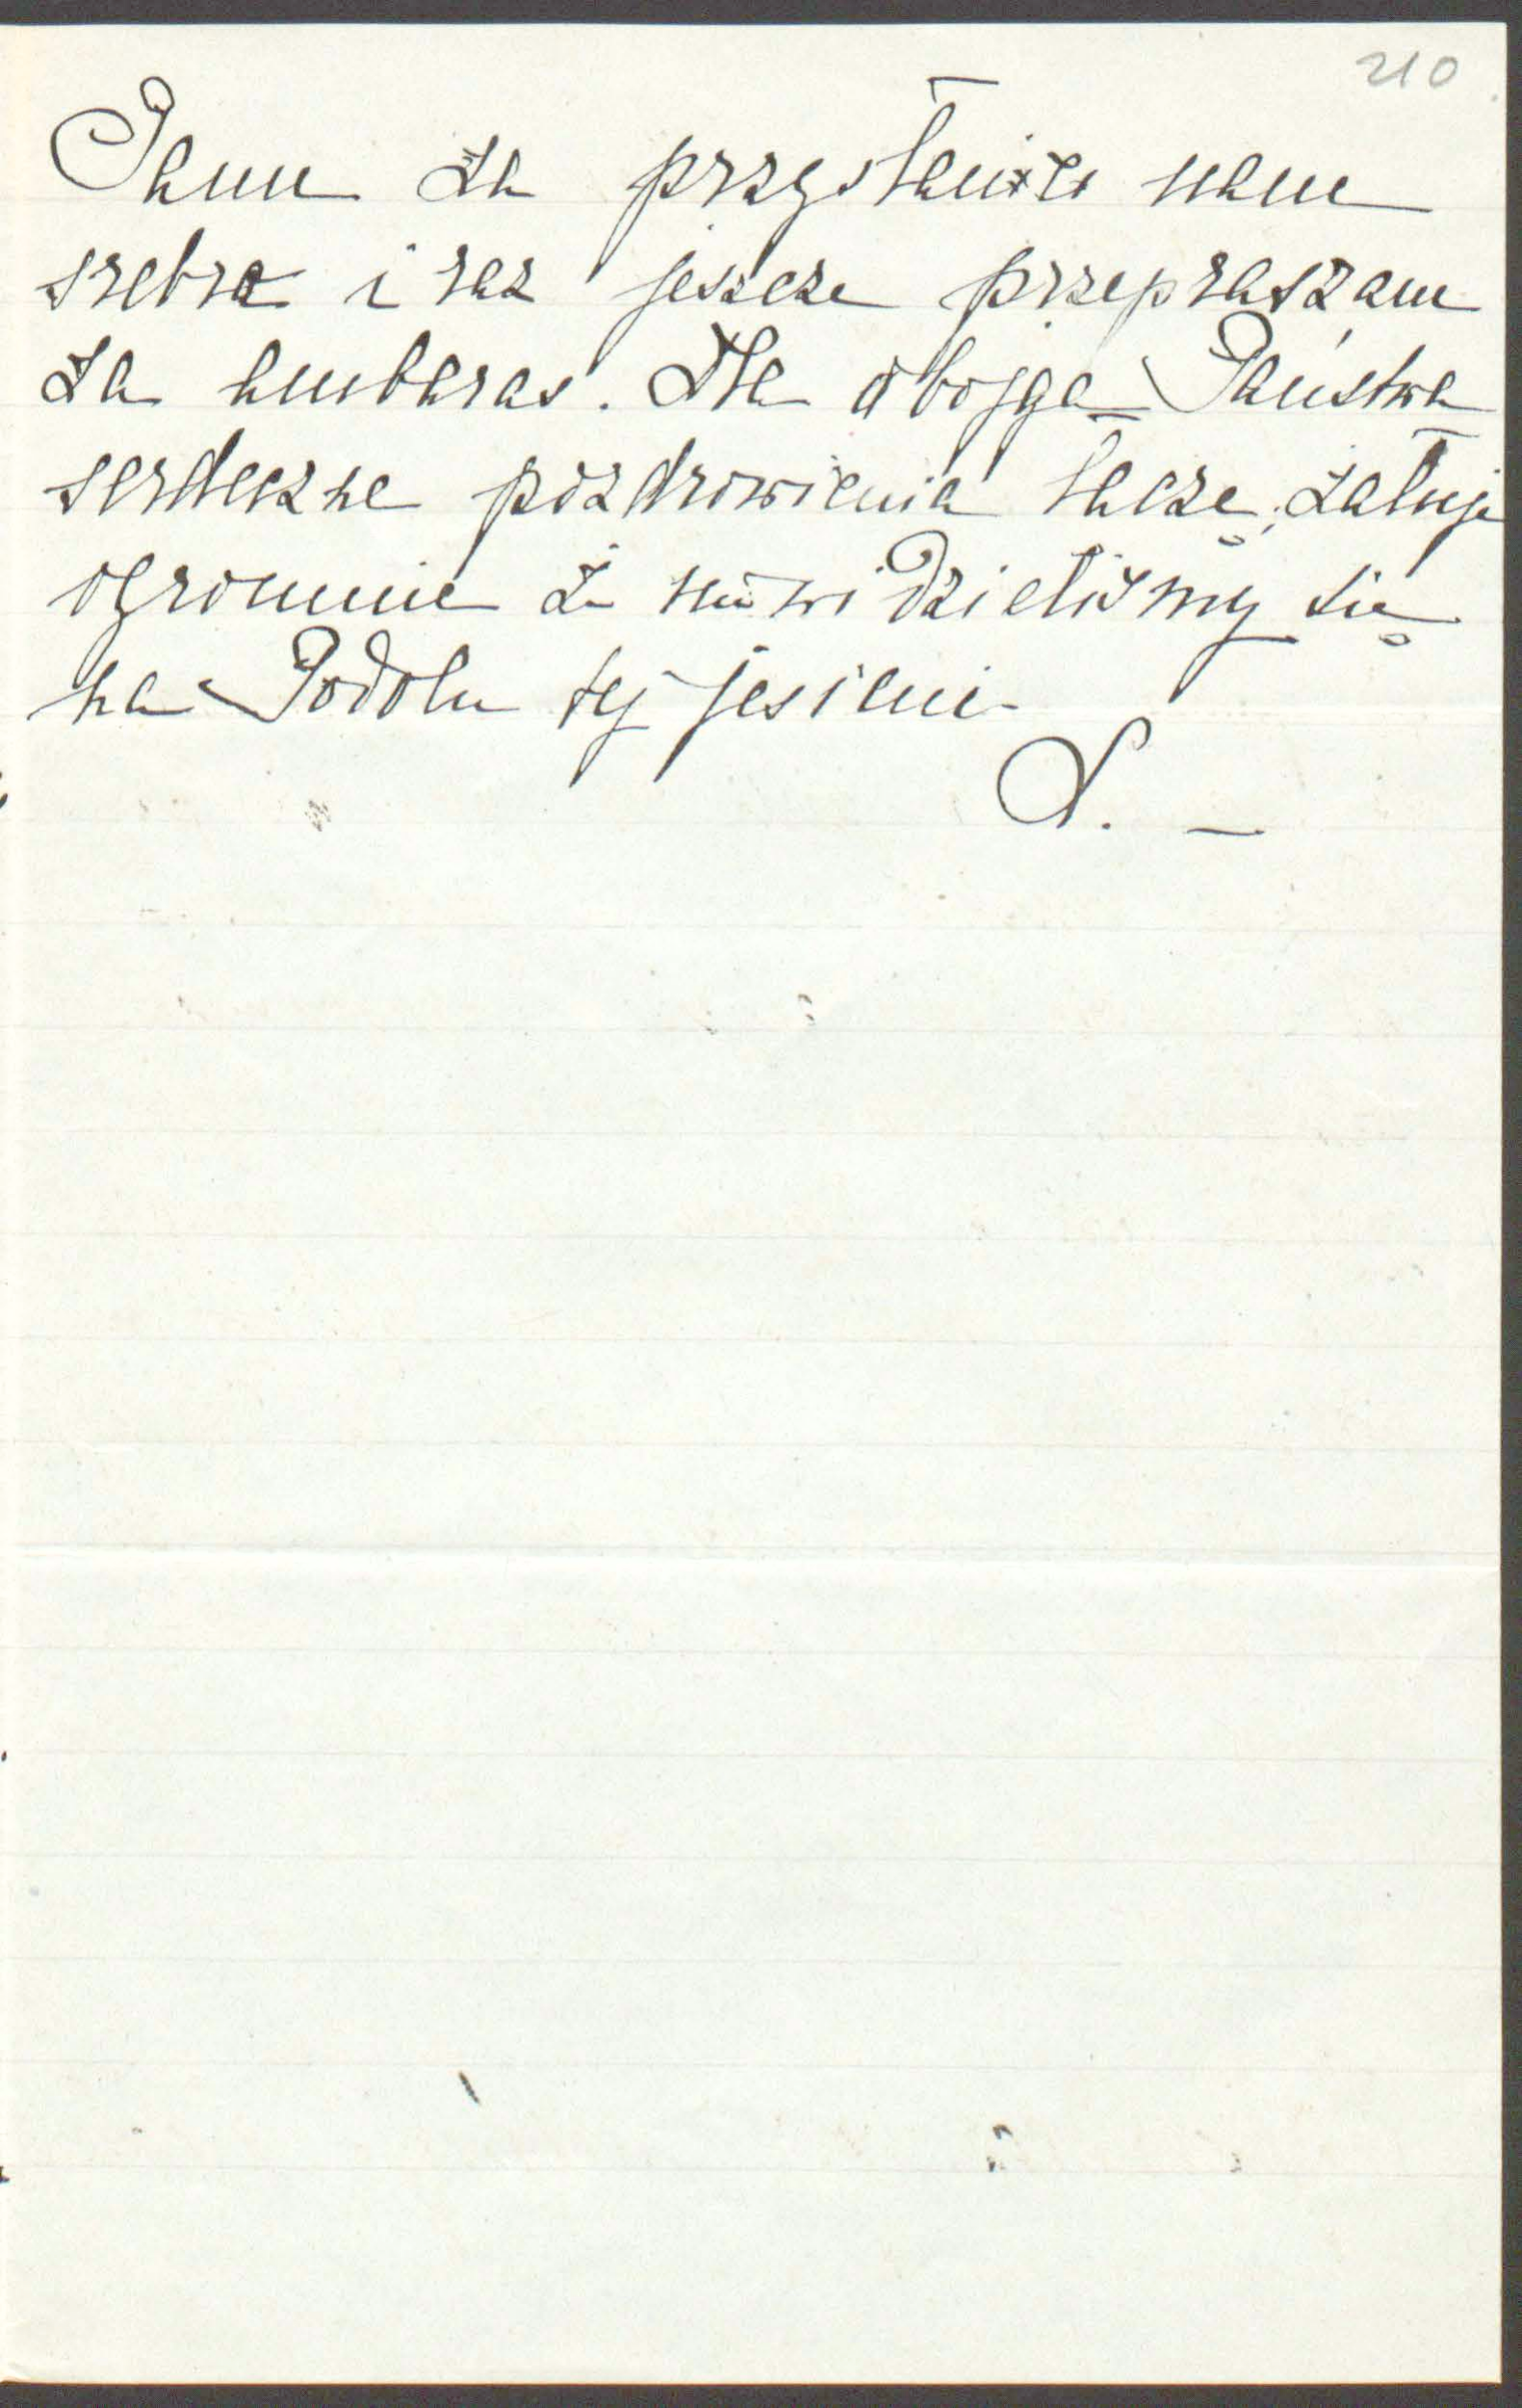 210
Panu za przysłanie nam
srebra i raz jeszcze przepraszam
za ambaras. Dla obojga Państwa
serdeczne pozdrowienia łączę, żałuję
ogromnie że nie widzieliśmy się
na Podolu tej jesieni –
S. –